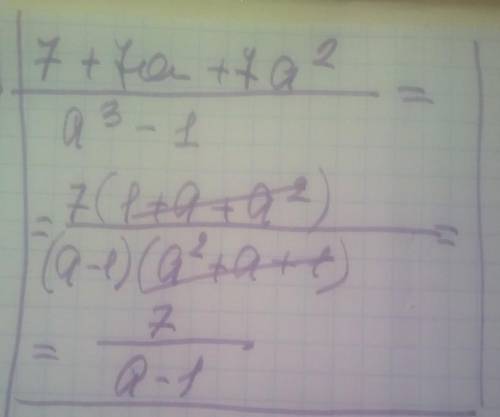 7 + 7a + 7a²
a³ - 1 =
= 7(1 + a + a²)
(a-1)(a² + a + 1) =
= 7
a - 1